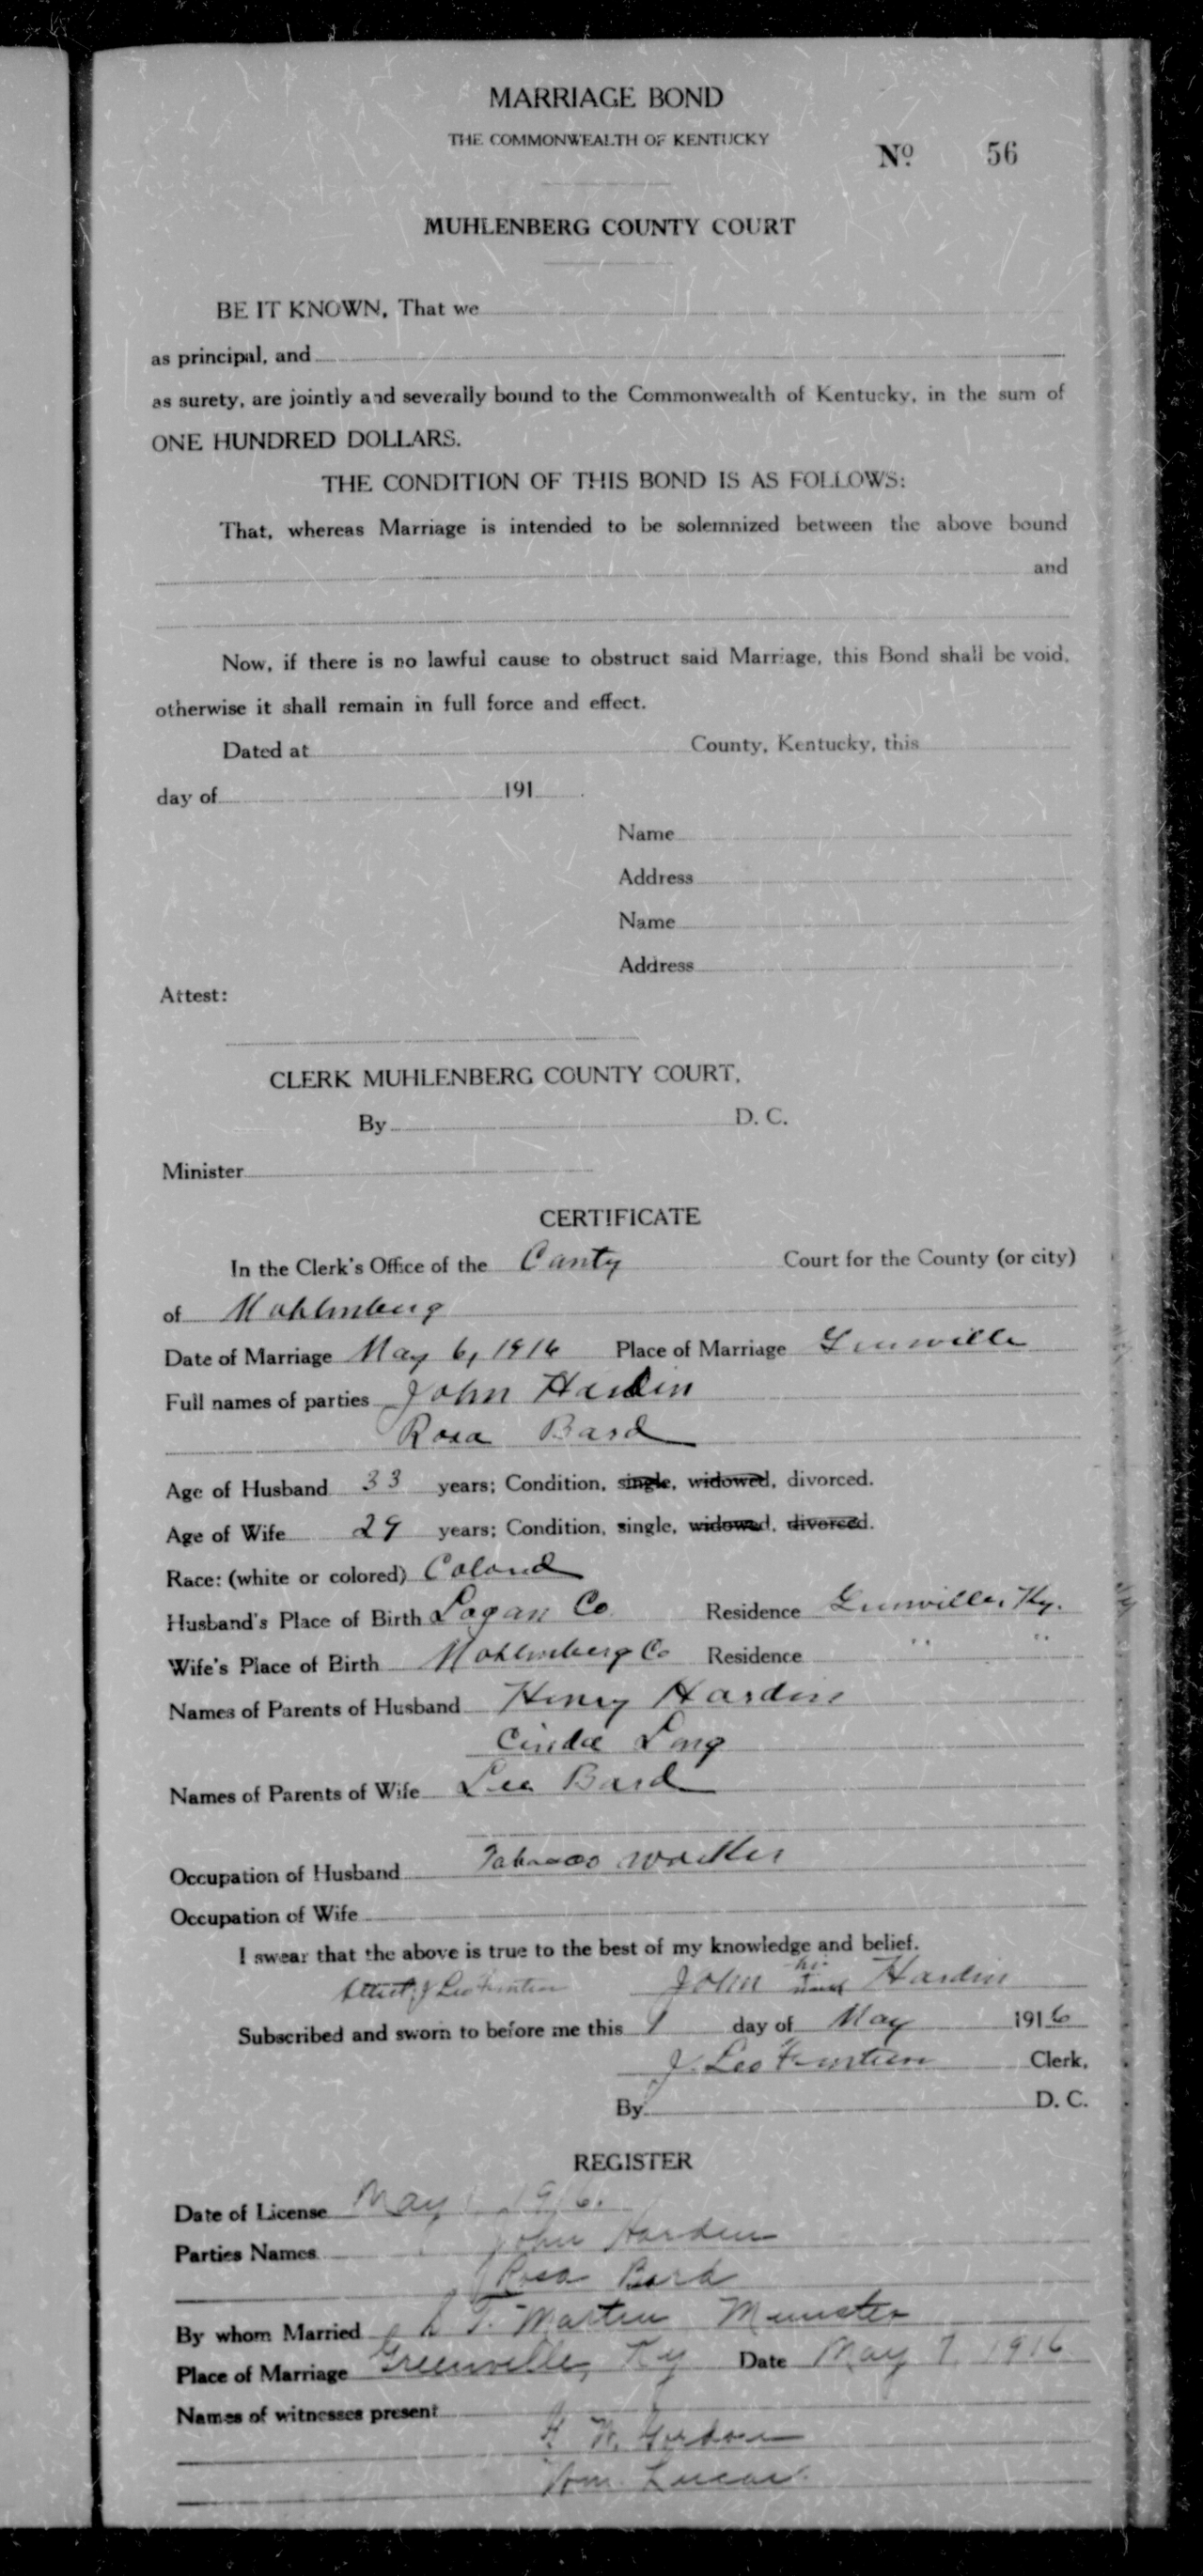 MARRIAGE BOND
THE COMMONWEALTH OF KENTUCKY
No. 56
MUHLENBERG COUNTY COURT
BE IT KNOWN, That we
as principal, and
as surety, are jointly and severally bound to the Commonwealth of Kentucky, in the sum of
ONE HUNDRED DOLLARS.
THE CONDITION OF THIS BOND IS AS FOLLOWS:
That, whereas Marriage is intended to be solemnized between the above bound
and
Now, if there is no lawful cause to obstruct said Marriage, this Bond shall be void,
otherwise it shall remain in full force and effect.
Dated at County, Kentucky, this
day of 191
Name
Address
Name
Address
Attest:
CLERK MUHLENBERG COUNTY COURT,
By D. C.
Minister
CERTIFICATE
In the Clerk's Office of the County Court for the County (or city)
of Muhlenberg
Date of Marriage May 6, 1916 Place of Marriage Greenville
Full names of parties John Hardin
Rosa Bard
Age of Husband 33 years; Condition, single, widowed, divorced.
Age of Wife 29 years; Condition, single, widowed, divorced.
Race: (white or colored) Colored
Husband's Place of Birth Logan Co Residence Greenville, Ky.
Wife's Place of Birth Muhlenberg Co Residence " "
Names of Parents of Husband Henry Hardin
Cinda Long
Names of Parents of Wife Lee Bard
Occupation of Husband Tobacco Worker
Occupation of Wife
I swear that the above is true to the best of my knowledge and belief.
his
Attest: J Leo John x mark Hardin
Subscribed and sworn to before me this day of May 1916
J. Leo Clerk,
By D. C.
REGISTER
Date of License May 1916.
Parties Names John Harden
Rosa Bard
By whom Married T. Martin Minister
Place of Marriage Greenville, Ky Date May 7, 1916
Names of witnesses present
Wm. Lucas.